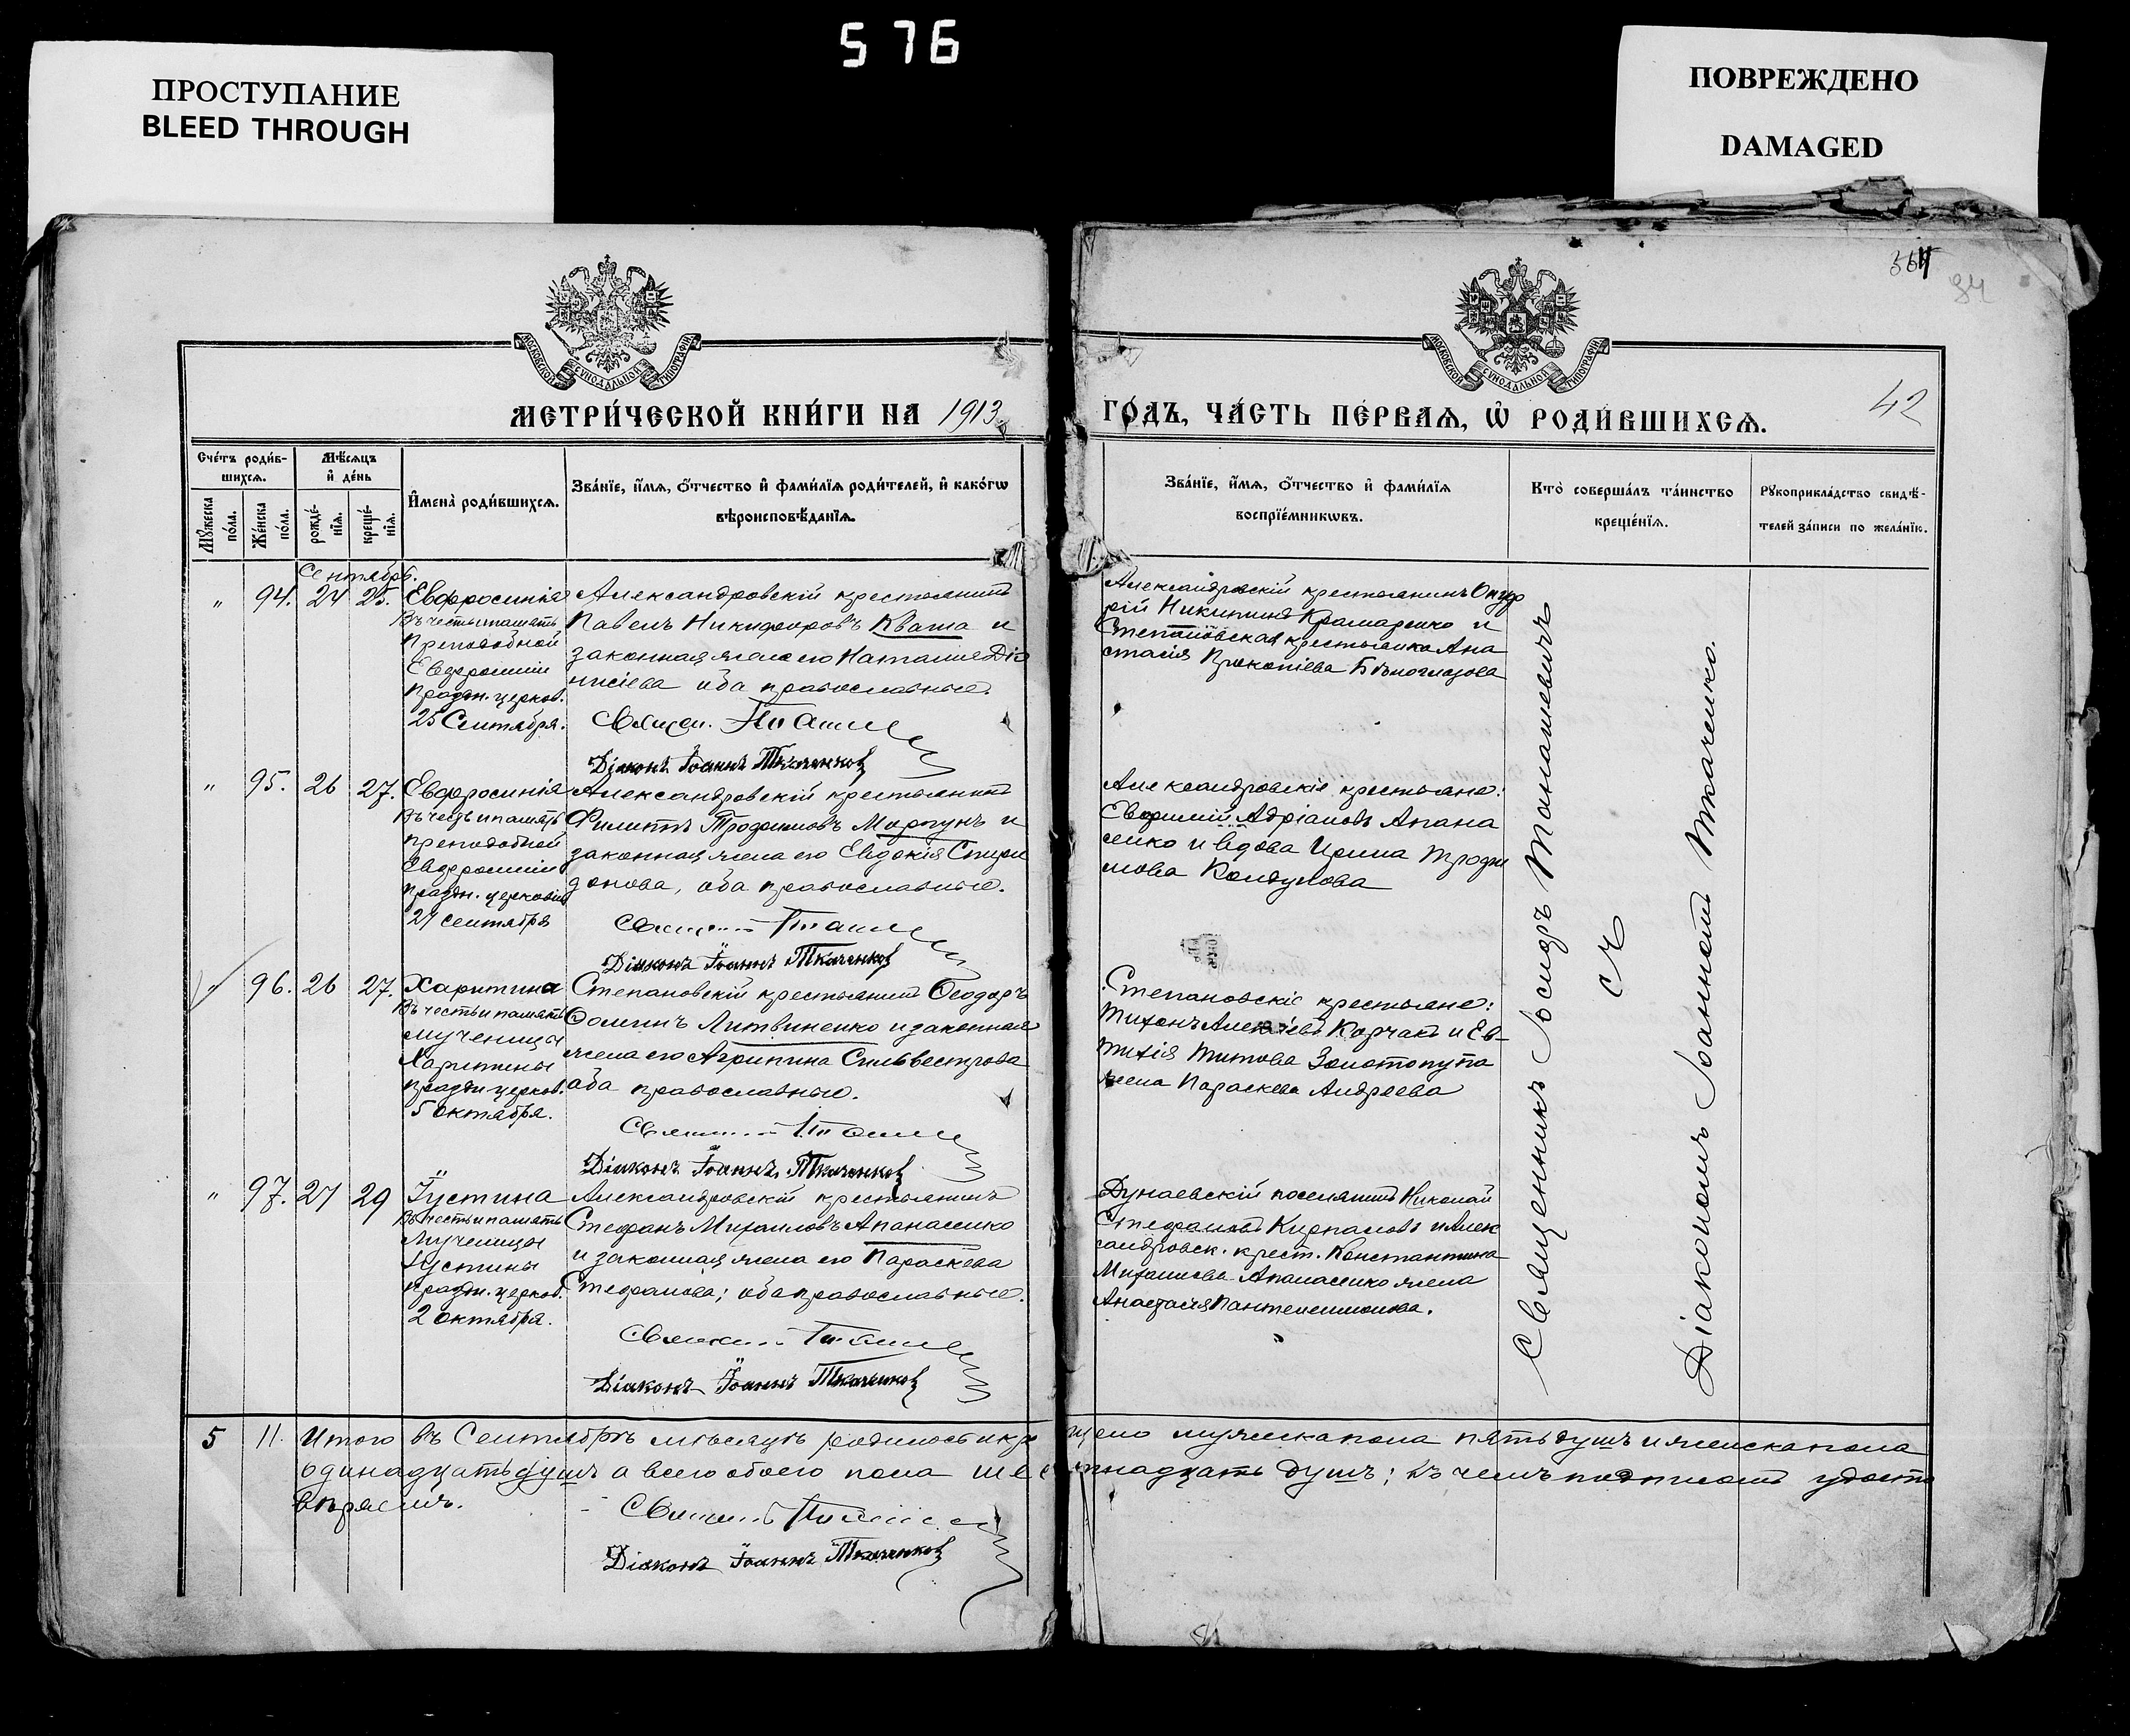 576
ПРОСТУПАНИЕ
BLEED THROUGH
ПОВРЕЖДЕНО
DAMAGED
84
МОСКОВСКОЙ СѴНОДАЛЬНОЙ ТИПОГРАФІИ
МОСКОВСКОЙ СѴНОДАЛЬНОЙ ТИПОГРАФІИ
МЕТРИ́ЧЕСКОЙ КНИ́ГИ НА 1913
ГО́ДЪ, ЧА́СТЬ ПЕ́РВАѦ, Ѡ҆ РОДИ́ВШИХСѦ.
42
Сче́тъ роди́в-
шихсѧ.
Мꙋ́жеска по́ла.
Же́нска по́ла.
Мѣ́сѧцъ
и҆ де́нь
рожде́-нїѧ.
креще́-нїѧ.
И҆мена̀ роди́вшихсѧ.
Зва́нїе, и҆́мѧ, ѻ҆́тчество и҆ фами́лїѧ роди́телей, и҆ како́гѡ
вѣроисповѣ́данїѧ.
Зва́нїе, и҆́мѧ, ѻ҆́тчество и҆ фами́лїѧ
воспрїе́мникѡвъ.
Кто̀ соверша́лъ та́инство
креще́нїѧ.
Рꙋкоприкла́дство свидѣ́-
телей за́писи по жела́нїю.
Сентябрь.
" 94. 24 25. Евфросинія
Въ честь и память
Преподобной
Евфросиніи
праздн. церков.
25 Сентября.
Александровскій крестьянинъ
Павелъ Никифоровъ Кваша и
законная жена его Наталія Діо
нисіева оба православные.
Діаконъ Іоаннъ Ткаченковъ
Александровскій крестьянинъ Онуф
рій Никитинъ Крамаренко и
Степановская крестьянка Ана
стасія Прокопіева Бѣлоглазова
" 95. 26 27. Евфросинія
Въ честь и память
преподобной
Евфросиніи
праздн. церковью
27 сентября
Александровскій крестьянинъ
Филиппъ Трофимовъ Моргунъ и
законная жена его Евдокія Спири
донова, оба православные.
Діаконъ Іоаннъ Ткаченковъ
Александровскіе крестьяне:
Евфимій Адріановъ Апана
сенко и вдова Ирина Трофи
мова Колдунова
96. 26 27. Харитина
Въ честь и память
мученицы
Харитины
праздн. церков.
5 октября.
Степановскій крестьянинъ Ѳеодоръ
Ѳоминъ Литвиненко и законная
жена его Агрипина Сильвестрова
оба православные.
Діаконъ Іоаннъ Ткаченковъ
Степановскіе крестьяне:
Тихонъ Алексѣевъ Корчакъ и Ев-
тихія Титова Золотопупа
жена Параскева Андреева
" 97. 27 29 Іустина
Въ честь и память
Мученицы
Іустины
праздн. церков.
2 октября.
Александровскій крестьянинъ
Стефанъ Михаиловъ Апанасенко
и законная жена его Параскева
Стефанова; оба православные.
Діаконъ Іоаннъ Ткаченковъ
Дунаевскій поселянинъ Николай
Стефановъ Курпановъ и Алек
сандровск. крест. Константина
Михаилова Апанасенко жена
Анастасія Пантелеимонова.
Священникъ Іосифъ Томашевичъ
съ
Діакономъ Іоанномъ Ткаченко.
5 11. Итого въ Сентябрѣ мѣсяцѣ родилось и кре
щено мужеска пола пять душъ и женска пола
одинадцать душъ а всего обоего пола шес
тнадцать душъ; въ чемъ подписомъ удосто
вѣряемъ.
Діаконъ Іоаннъ Ткаченковъ